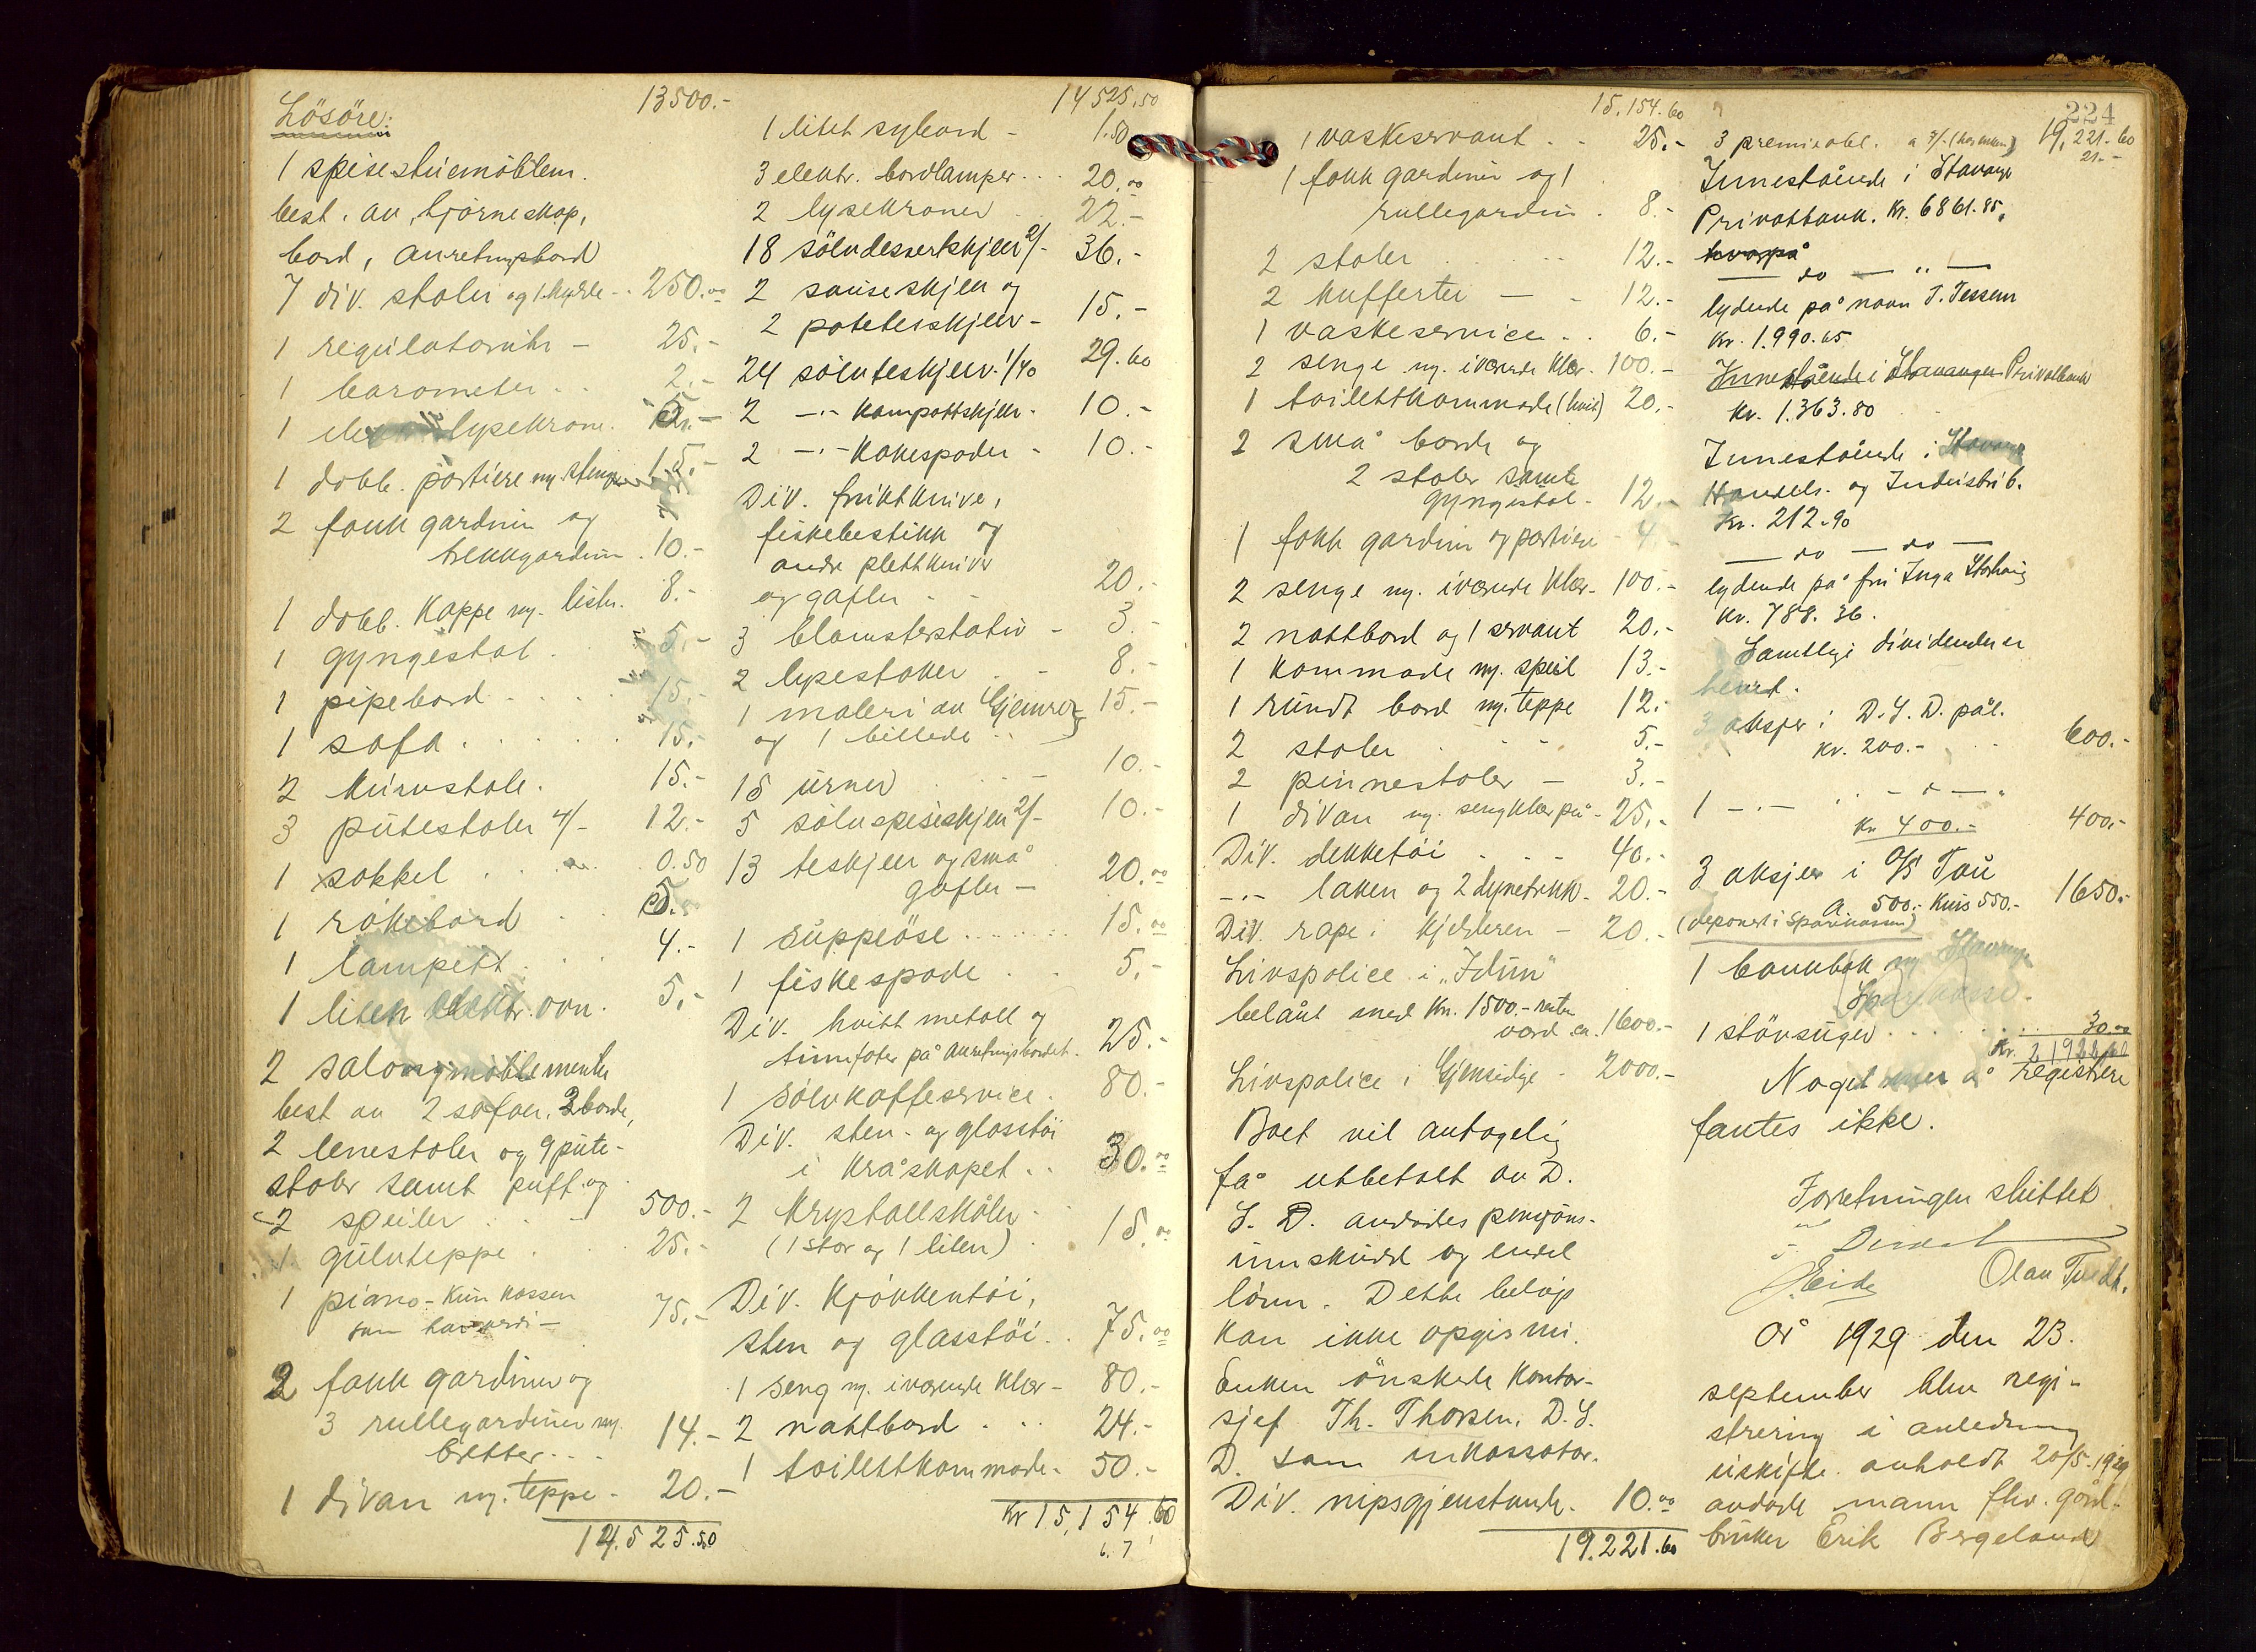 13500.-
Lösöre:
1 spisestuemöblem.
best. av hjörneskap,
bord, anretningsbord
7 div. stoler og 1 hylle - 250.00
1 regulatoruhr - 25.-
1 barometer . . 2.-
1 lysekrone.
1 dobb. portiere m. stenger 15.-
2 fakk gardiner og
trekkgardin . 10.-
1 dobb. Kappe m. lister. 8.-
1 gyngestol . 5.-
1 pipebord . . . 15.-
1 sofa . . . . 15.-
2 kurvstole. 15.-
3 pütestoler 4/- 12.-
1 sokkel . . . 0.50
1 rökebord . . 5.-
1 lampett . . . 4.-
1 liten elektr. ovn. 5.-
2 salongmöblementer
best av 2 sofaer, 3 borde,
2 lenestoler og 9 püte-
stoler samt puff og
2 speiler . . - 500.-
1 gulvteppe . . 25.-
1 piano - Kun kassen
som har verdi - 75.-
2 fakk gardiner og
3 rullegardiner m.
bretter . . . 14.-
1 divan m. teppe - 20.-
14.525.50
14525.50
1 litet sybord - 1.50
3 elektr. bordlamper . . . 20.00
2 lysekroner . . 22.-
18 sölvdessertskjeer 2/- 36.-
2 sauseskjeer og
2 poteterskjeer - 15.-
24 sölvteskjeer 1/40 29.60
2 -"- Kompottskjeer - 10.-
2 -"- Kakespader - 10.-
Div. fruktknive,
fiskebestikk og
andre plettkniver
og gafler - - 20.-
3 blomsterstativ - 3.-
2 lysestaker . - 8.-
1 maleri av Gjemre
og 1 billede . . 15.-
15 urner . . . - 10.-
5 sölvspiseskjeer 2/- 10.-
13 teskjeer og små
gafler - 20.00
1 suppeöse . . . . . . 15.00
1 fiskespade . . 5.-
Div. hvitt metall og
tinnfater på anretningsbordet . 25.-
1 sölvkaffeservice . 80.-
Div. sten- og glasstöi
i kråskapet . . 30.00
2 Krystallskåler .
(1 stor og 1 liten) . 15.00
Div. Kjökkentöi,
sten og glasstöi . . 75.00
1 seng m. iværende klær - 80.-
2 nattbord . . . 24.-
1 toilettkommode - 50.-
Kr 15,154.60
6. 7
15.154.60
1 vaskeservant . . 25.-
1 fakk gardiner og 1
rullegardin . 8.-
2 stoler . . . . 12.-
2 kufferter - - 12.-
1 vaskeservice . . 6.-
2 senge m. iværende klær. 100.-
1 toilettkommode (hvit) 20.-
2 små borde og
2 stoler samt
gyngestol - 12.-
1 fakk gardin og portiere - 4.-
2 senge m. iværende klær - 100.-
2 nattbord og 1 servant 20.-
1 kommode m. speil 13.-
1 rundt bord m. teppe 12.-
2 stoler . . - 5.-
2 pinnestoler - 3.-
1 divan m. sengklær på - 25.-
Div. dekketöi . . - 40.-
-"- laken og 2 dynetrekk - 20.-
Div. rape i kjelderen - 20.-
Livspolice i "Idun"
belånt med Kr. 1500.- 
verd ca. 1600.-
Livspolice i Gjensidige - 2000.-
Boet vil antagelig
få utbetalt av D.
S. D. avdödes pensjons-
innskudd og endel
lönn. Dette belöp
kan ikke opgis nu.
Enken önskede Kontor-
sjef Th. Thorsen, D.S.
D. som inkassator.
Div. nipsgjenstande. 10.00
19.221.60
224
19.221.60
3 premieobl. a 7/- 21.-
Innestående i Stavanger
Privatbank. Kr. 6861.85.
hvorpå
— do — " —
lydende på navn T. Tessem
Kr. 1.990.65
Innestående i Stavanger Privatbank
Kr. 1.363.80
Innestående i Stavanger
Handels- og Industrib.
Kr. 212.90
— do — do —
lydende på fru Inga Storhaug
Kr. 788.36.
Samtlige dividender er
hevet.
3 aksjer i D.S.D. pål.
Kr. 200.- . . 600.-
1 -"- . . - " - "
Kr 400.- 400.-
3 aksjer i A/S Tou
A. 500.- Kurs 550.- 1650.-
(deponert i Sparekassen)
1 bankbok m. Stavanger
Sparekasse.
1 stövsuger . . . . . . 30.00
Kr. 21922.60
Noget mer å registrere
fantes ikke.
Forretningen sluttet
J. Eide Olav Tvedt.
År 1929 den 23.
september blev regi-
strering i anledning
uskifte avholdt 20/5-1929
avdöde mann fhv. gård-
bruker Erik Bergeland